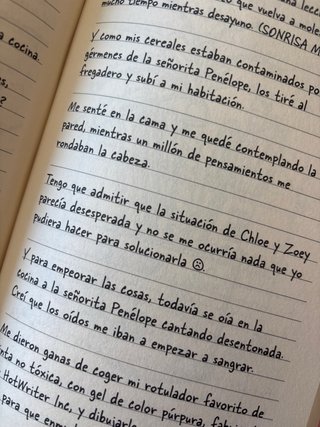 a lecc
que vuelva a moles
mucho tiempo mientras desayuno. (SONRISA M
Y como mis cereales estaban contaminados po
gérmenes de la señorita Penélope, los tiré al
fregadero y subí a mi habitación.
Me senté en la cama y me quedé contemplando la
pared, mientras un millón de pensamientos me
rondaban la cabeza.
Tengo que admitir que la situación de Chloe y Zoey
parecía desesperada y no se me ocurría nada que yo
pudiera hacer para solucionarla ☹
Y para empeorar las cosas, todavía se oía en la
cocina a la señorita Penélope cantando desentonada.
Creí que los oídos me iban a empezar a sangrar.
Me dieron ganas de coger mi rotulador favorito de
nta no tóxica, con gel de color púrpura, fab
HotWriter Inc, y dibujarle
para que enm
a cocina.
s,
?